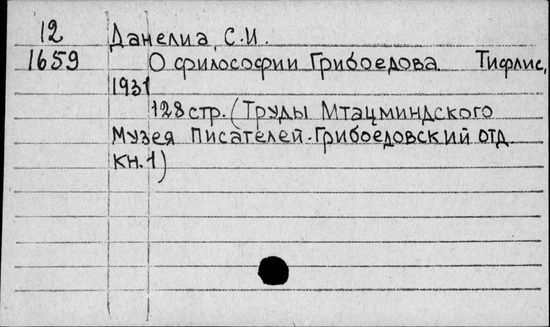 12
Данелиа, С.И.
1659
О философии Грибоедова. Тифлис,
1931
128 стр. (Труды Мтацминдского
Музея Писателей-Грибоедовский отд.
кн.1)